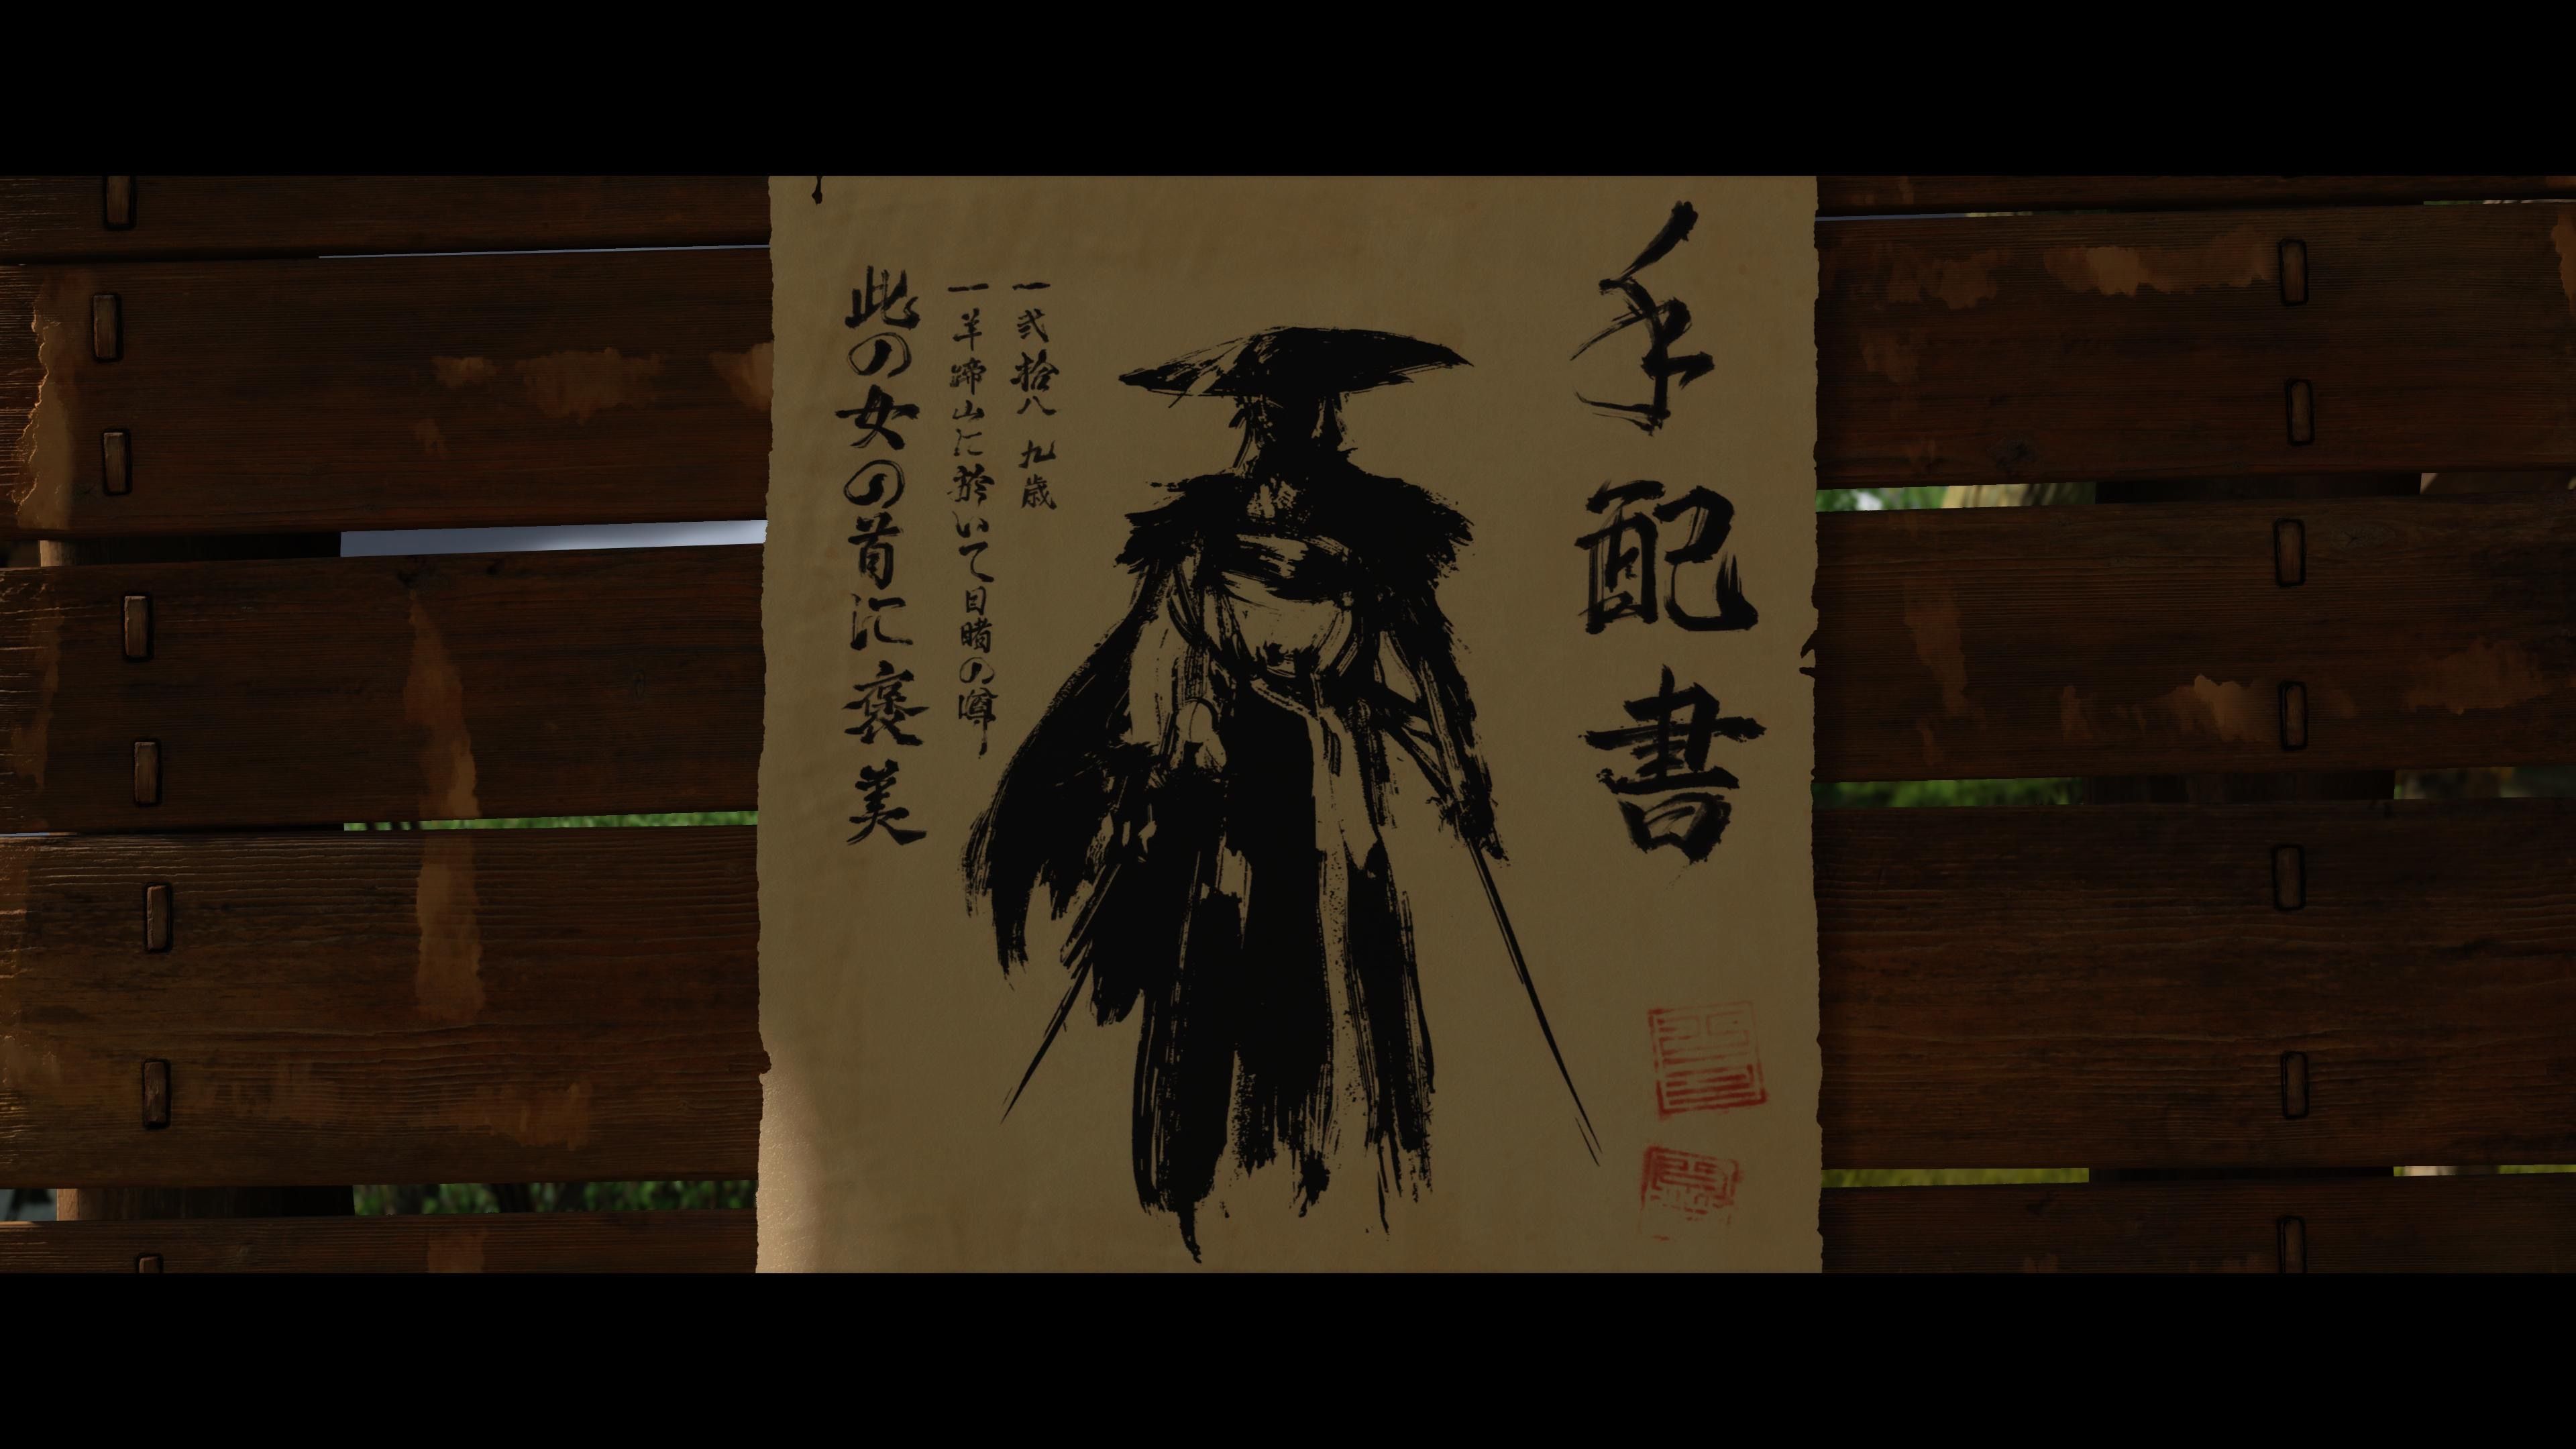 手配書
一 弐拾八 九歳
一 羊蹄山に於いて目睹の噂
此の女の首に褒美